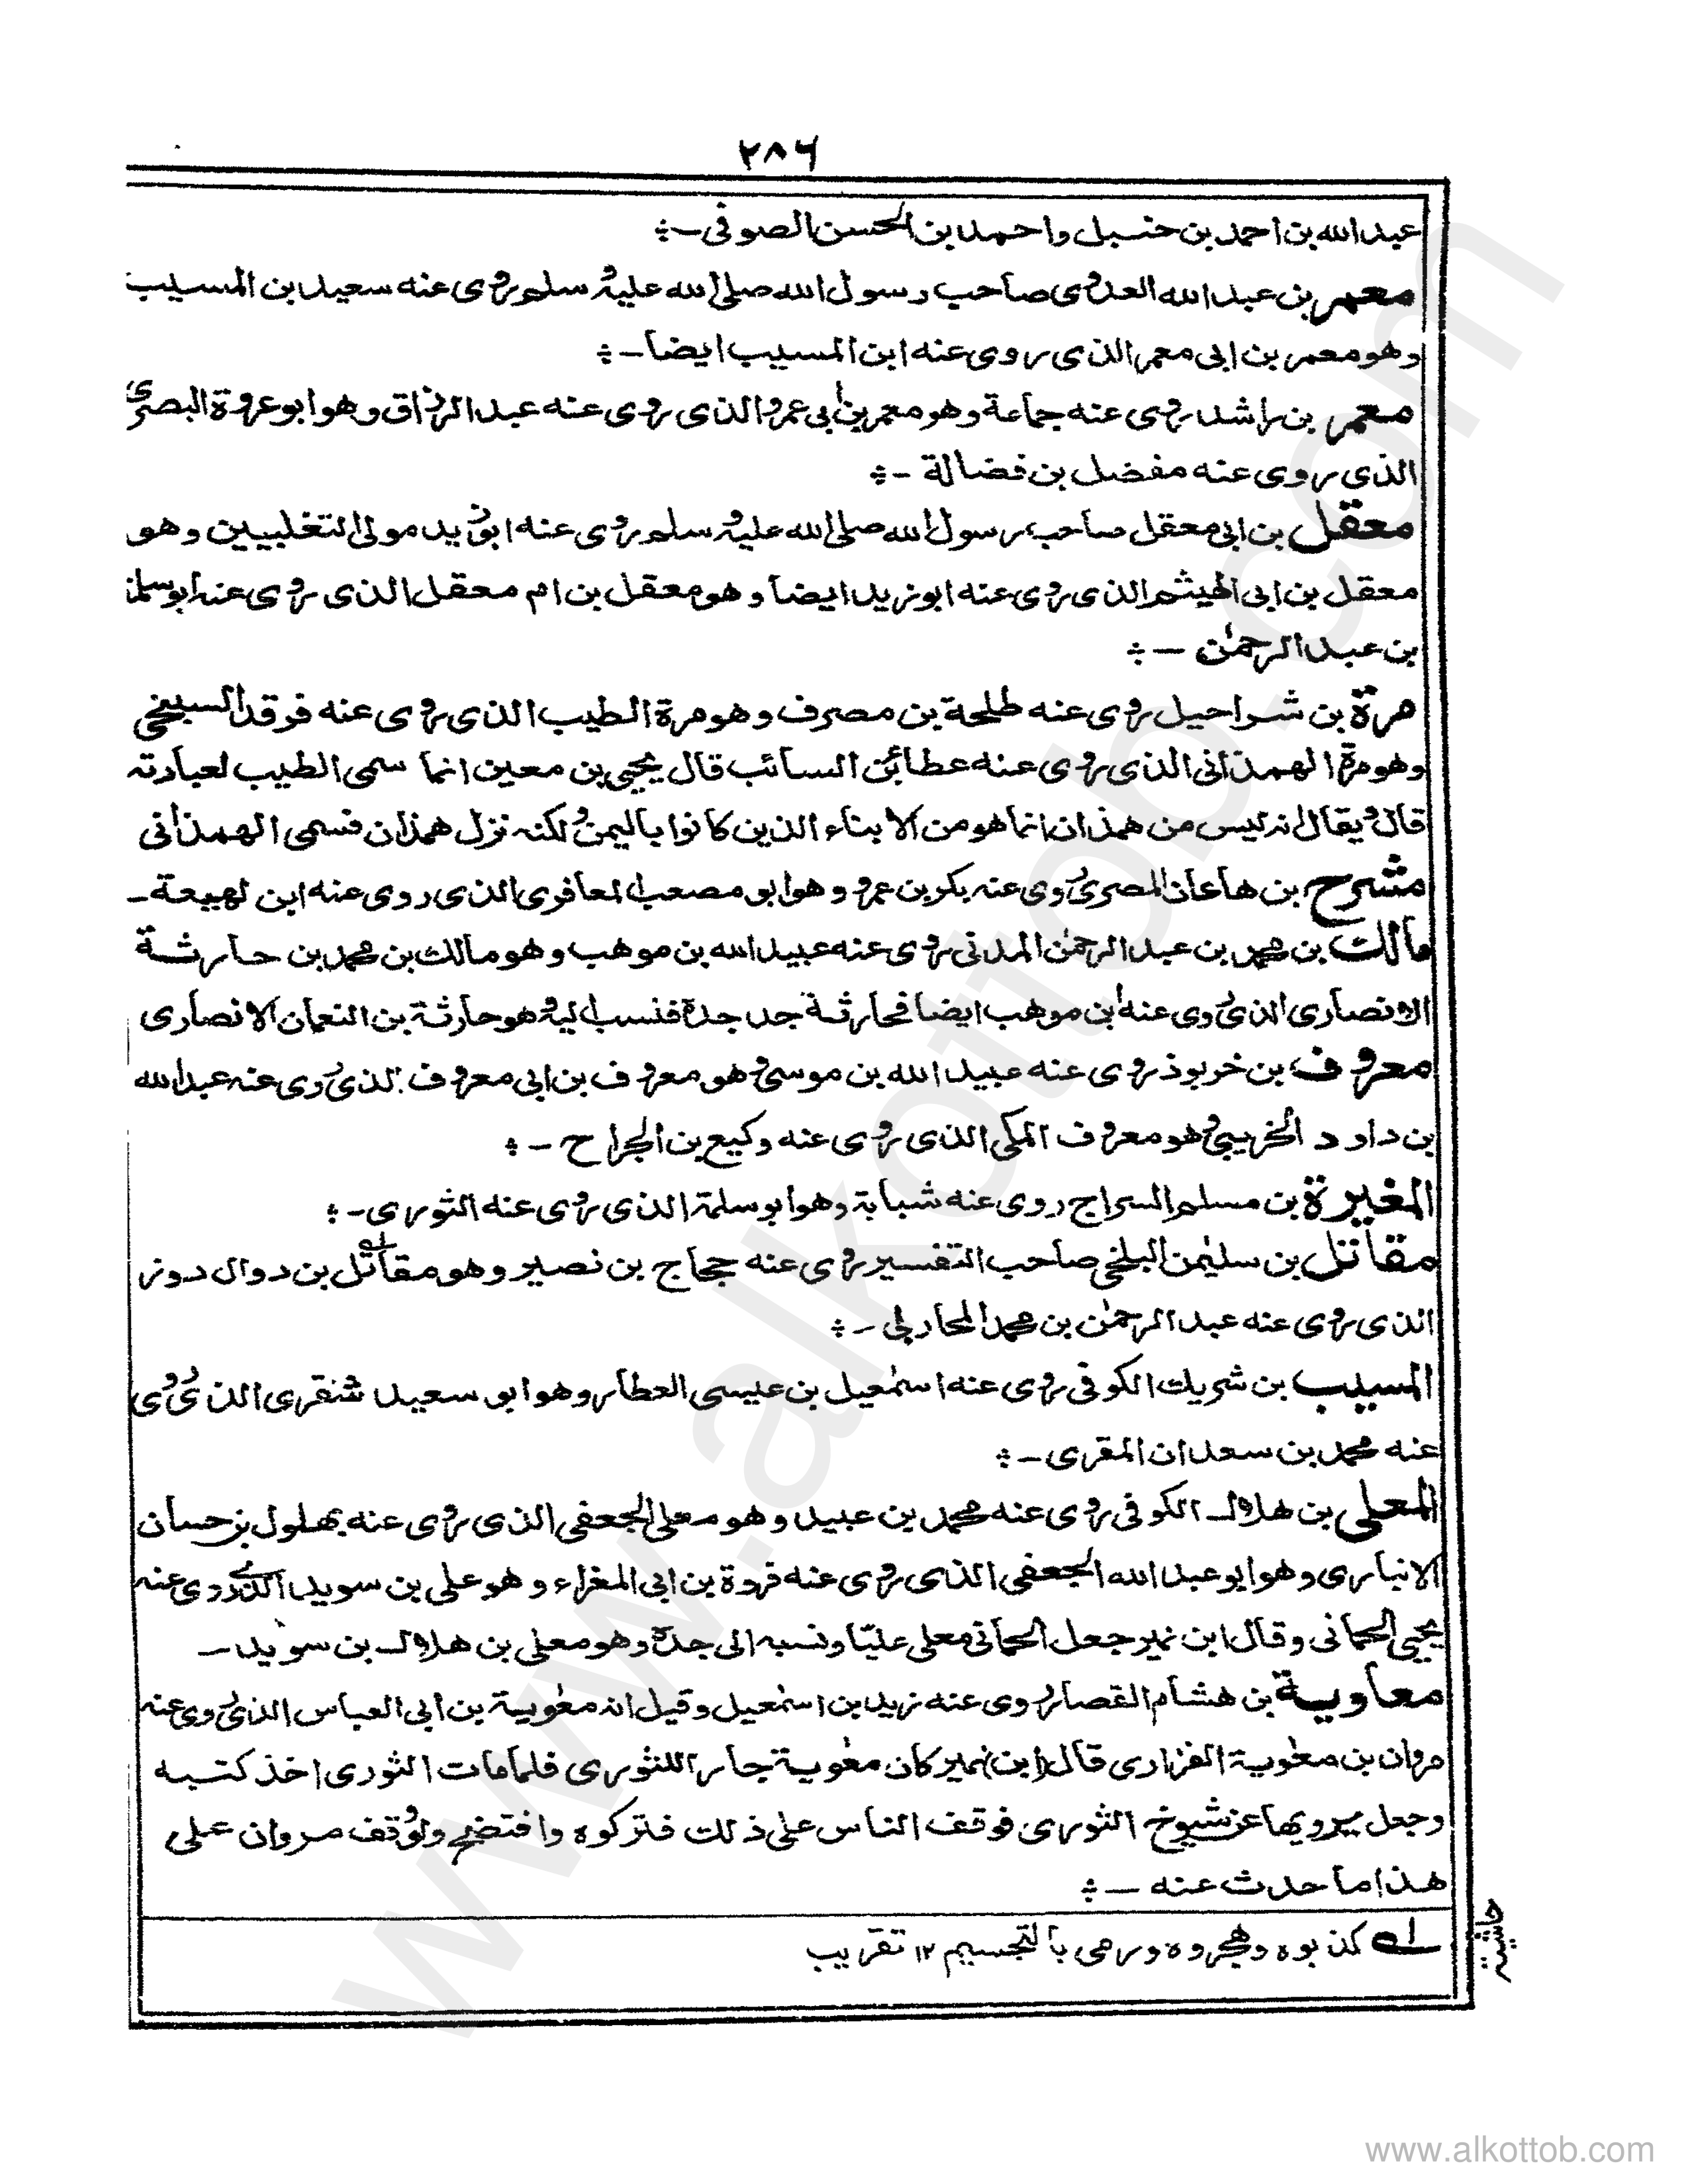 ٢٨٦
عبد الله بن احمد بن حنبل واحمد بن الحسن الصوفى -
معمر بن عبد الله العدوى صاحب رسول الله صلى الله عليه و سلم روى عنه سعيد بن المسيب
وهو معمر بن ابى معمر الذى روى عنه ابن المسيب ايضا -
معمر بن راشد روى عنه جماعة وهو معمر بن ابى عمرو الذى روى عنه عبد الرزاق وهو ابو عروة البصرى
الذى روى عنه مفضل بن فضالة -
معقل بن ابى معقل صاحب رسول الله صلى الله عليه و سلم روى عنه ابو زيد مولى التغلبيين وهو
معقل بن ابى الهيثم الذى روى عنه ابو زيد ايضا وهو معقل بن ام معقل الذى روى عنه ابو سلمة
بن عبد الرحمٰن -
مرة بن شراحيل روى عنه طلحة بن مصرف وهو مرة الطيب الذى روى عنه فرقد السبخى
وهو مرة الهمذانى الذى روى عنه عطاء بن السائب قال يحيى بن معين انما سمى الطيب لعبادته
قال و يقال انه ليس من همذان انما هو من الابناء الذين كانوا باليمن و لكنه نزل همذان فسمى الهمذانى
مشرح بن هاعان المصرى روى عنه بكر بن عمرو وهو ابو مصعب المعافرى الذى روى عنه ابن لهيعة -
مالك بن محمد بن عبد الرحمٰن المدنى روى عنه عبيد الله بن موهب وهو مالك بن محمد بن حارثة
الانصارى الذى روى عنه ابن موهب ايضا فحارثة جد جدة فنسب اليه و هو حارثة بن النعمان الانصارى
معروف بن خربوذ روى عنه عبيد الله بن موسى و هو معروف بن ابى معروف الذى روى عنه عبد الله
بن داود الخريبى و هو معروف المكى الذى روى عنه وكيع بن الجراح -
المغيرة بن مسلم السراج روى عنه شبابة وهو ابو سلمة الذى روى عنه الثورى -
مقاتل بن سليمٰن البلخى صاحب التفسير روى عنه حجاج بن نصير وهو مقاتل له بن دوال دوز
الذى روى عنه عبد الرحمٰن بن محمد المحاربى -
المسيب بن شريك الكوفى روى عنه اسمٰعيل بن عيسى العطار وهو ابو سعيد شقرى الذى روى
عنه محمد بن سعدان المقرى -
المعلى بن هلال الكوفى روى عنه محمد بن عبيد وهو معلى الجعفى الذى روى عنه بهلول بن حسان
الانبارى وهو ابو عبد الله الجعفى الذى روى عنه فروة بن ابى المغراء وهو على بن سويد الذى روى عنه
يحيى الحمانى وقال ابن نمير جعل الحمانى معلى عليّا ونسبه الى جدة وهو معلى بن هلال بن سويد -
معاوية بن هشام القصار روى عنه زيد بن اسمٰعيل وقيل انه معٰوية بن ابى العباس الذى روى عنه
مروان بن معٰوية الفزارى قال (ابن) نمير كان معٰوية جارا للثورى فلما مات الثورى اخذ كتبه
وجعل يرويها عن شيوخ الثورى فوقف الناس على ذلك فتركوه وافتضح و لو وقف مروان على
هذا ما حدث عنه -
له كذبوه وهجروه ورمى بالتجسيم ١٢ تقريب
حاشيه
www.alkottob.com
www.alkottob.com